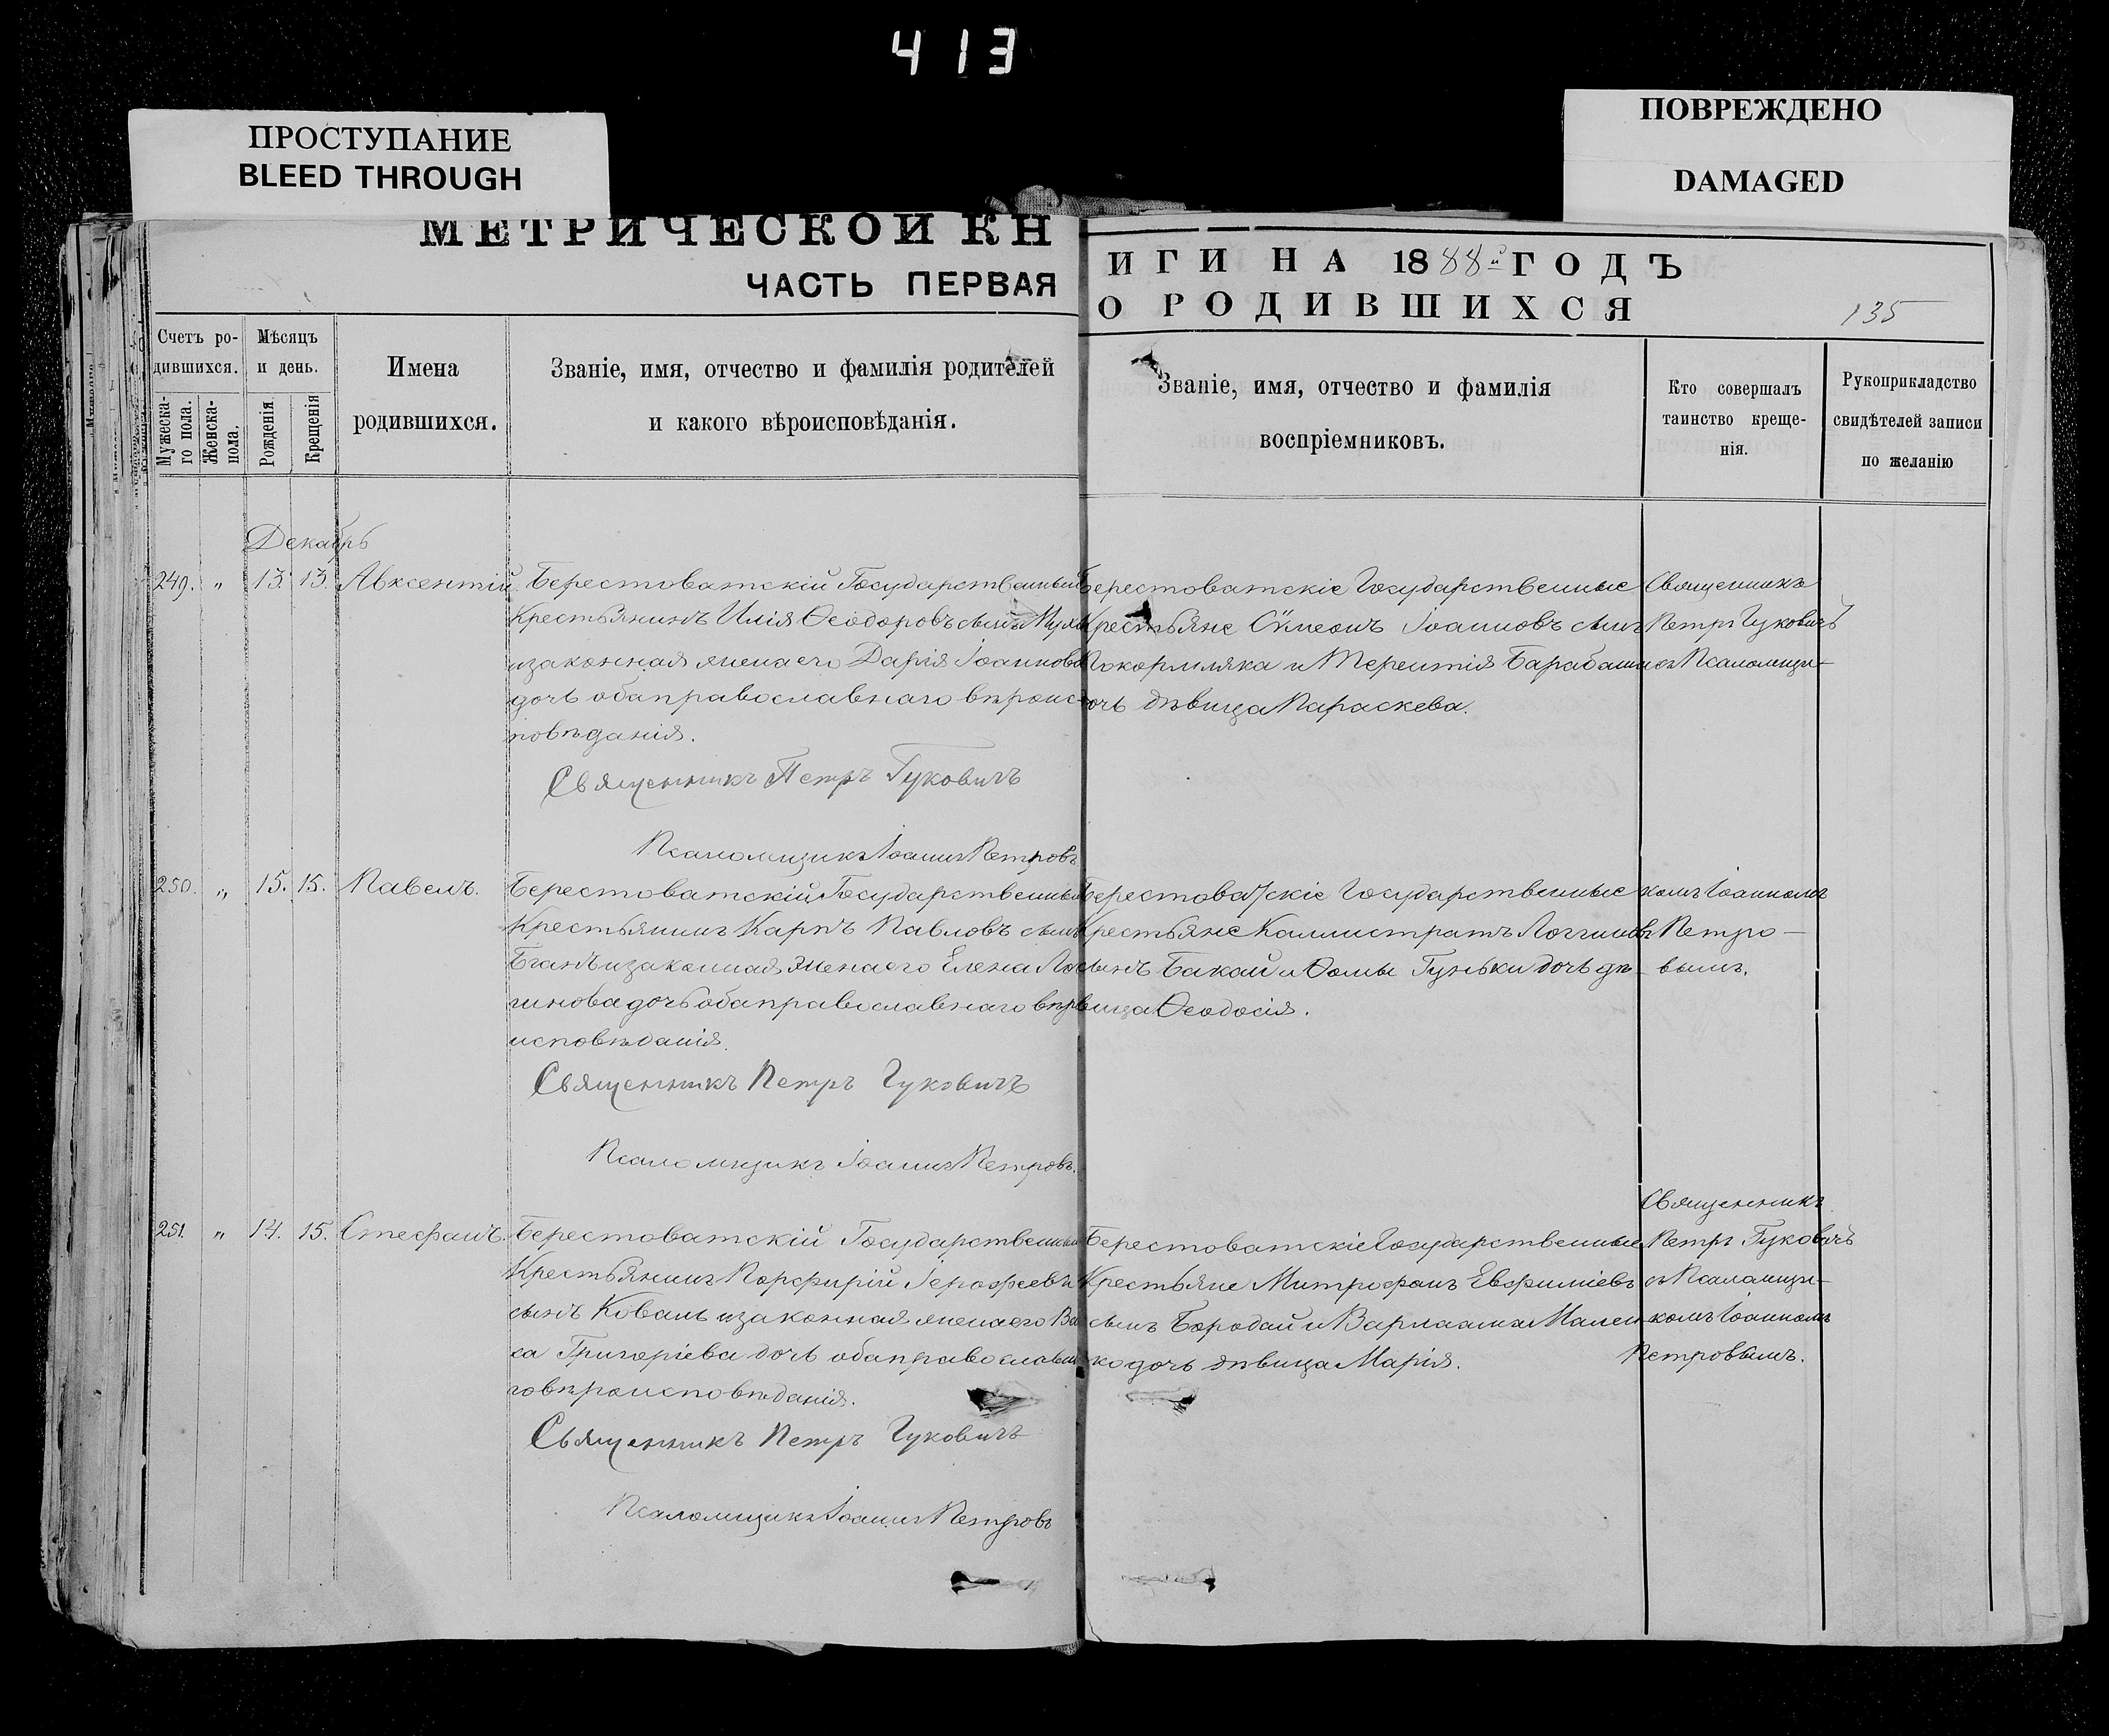 413
ПРОСТУПАНИЕ
BLEED THROUGH
ПОВРЕЖДЕНО
DAMAGED
МЕТРИЧЕСКОЙ КН
ИГИ НА 1888й ГОДЪ
ЧАСТЬ ПЕРВАЯ
О РОДИВШИХСЯ
135
Счетъ ро-
дившихся.
Мужеска-
го пола.
Женска-
пола.
Мѣсяцъ
и день.
Рожденія
Крещенія
Имена
родившихся.
Званіе, имя, отчество и фамилія родителей
и какого вѣроисповѣданія.
Званіе, имя, отчество и фамилія
воспріемниковъ.
Кто совершалъ
таинство креще-
нія.
Рукоприкладство
свидѣтелей записи
по желанію
Декабрь
249. " 13. 13. Авксентій.
Берестоватскій Государственный
Крестьянинъ Илія Ѳеодоровъ сынъ
и законная жена его Дарія Іоаннова
дочь оба православнаго вѣроис-
повѣданія.
Священникъ Петръ Гуковичъ
Псаломщикъ Іоаннъ Петровъ
Берестоватскіе Государственные
Крестьяне Сѵмеонъ Іоанновъ сынъ
Покормляка и Терентія Барабаша
дочь дѣвица Параскева.
Священникъ
Петръ Гуковичъ
съ Псаломщи-
250. " 15. 15. Павелъ.
Берестоватскій Государственный
Крестьянинъ Карпъ Павловъ сынъ
и законная жена его Елена Лог-
гинова дочь оба православнаго вѣро
исповѣданія.
Священникъ Петръ Гуковичъ
Псаломщикъ Іоаннъ Петровъ.
Берестоватскіе Государственные
Крестьяне Каллистратъ Логгиновъ
сынъ Бакай и Ѳомы Гуньки дочь дѣ-
вица Ѳеодосія.
комъ Іоанномъ
Петро-
вымъ.
251. " 14. 15. Стефанъ.
Берестоватскій Государственный
Крестьянинъ Порфирій Іерофеевъ
сынъ Коваль и законная жена его Ва
са Григоріева дочь оба православна
го вѣроисповѣданія.
Священникъ Петръ Гуковичъ
Псаломщикъ Іоаннъ Петровъ
Берестоватскіе Государственные
Крестьяне Митрофанъ Евфиміевъ
сынъ Бородай и Варлаама Мален
ко дочь дѣвица Марія.
Священникъ
Петръ Гуковичъ
съ Псаломщи-
комъ Іоанномъ
Петровымъ.